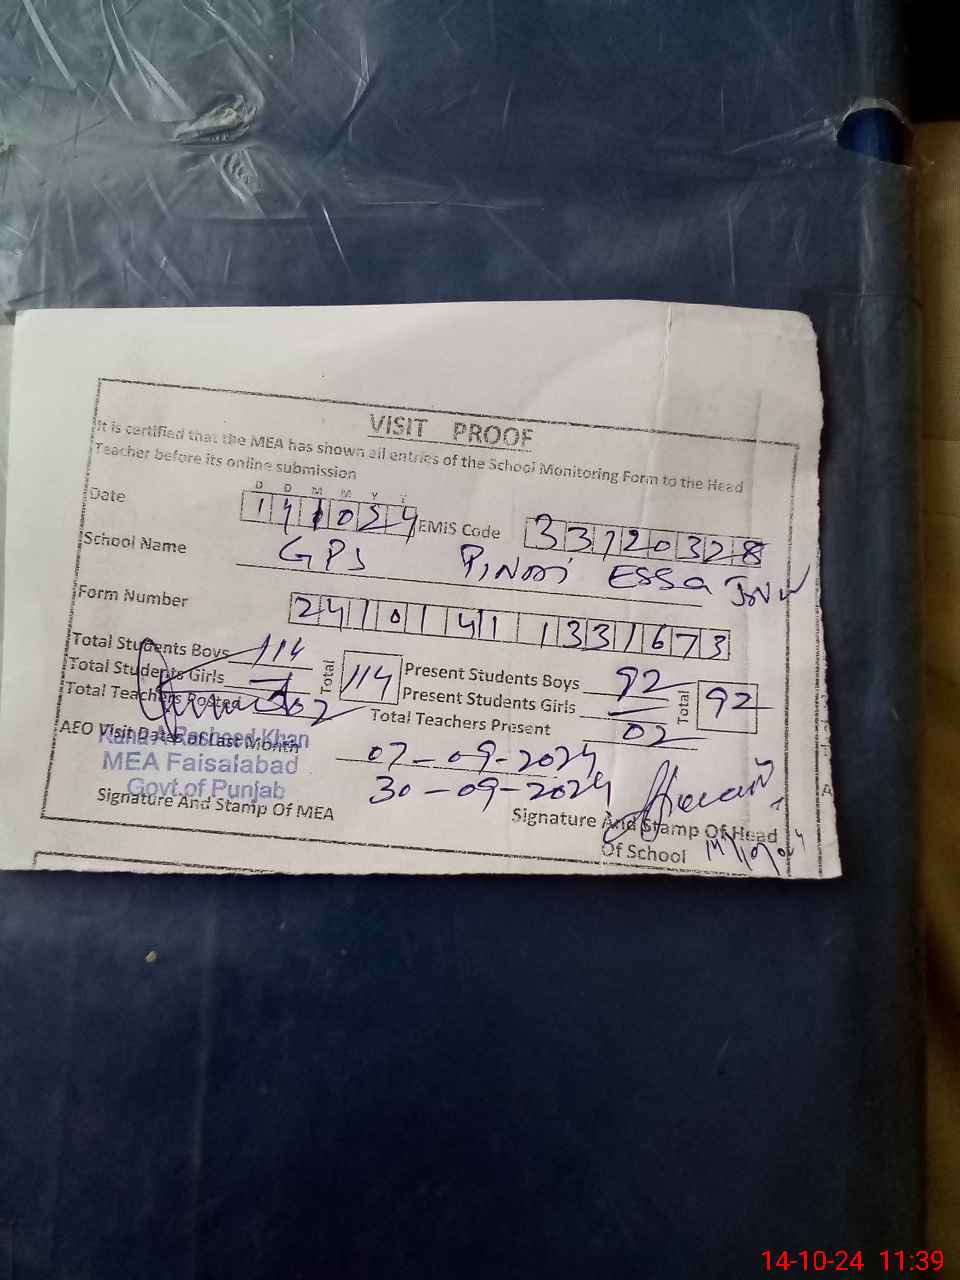 VISIT PROOF
It is certified that the MEA has shown all entries of the School Monitoring Form to the Head
Teacher before its online submission
D D M M Y Y
Date 141024 EMIS Code 33120328
School Name GPS Pindi ESSa
Form Number 24101411331673
Total Students Boys 114 Total 114 Present Students Boys 92 Total 92
Total Students Girls — Present Students Girls —
Total Teachers Posted 02 Total Teachers Present 02
AEO Visit Dates of Last Month 07-09-2024
30-09-2024
Rana A Rasheed Khan
MEA Faisalabad
Govt of Punjab
Signature And Stamp Of MEA
Signature And Stamp Of Head
Of School
14-10-24 11:39